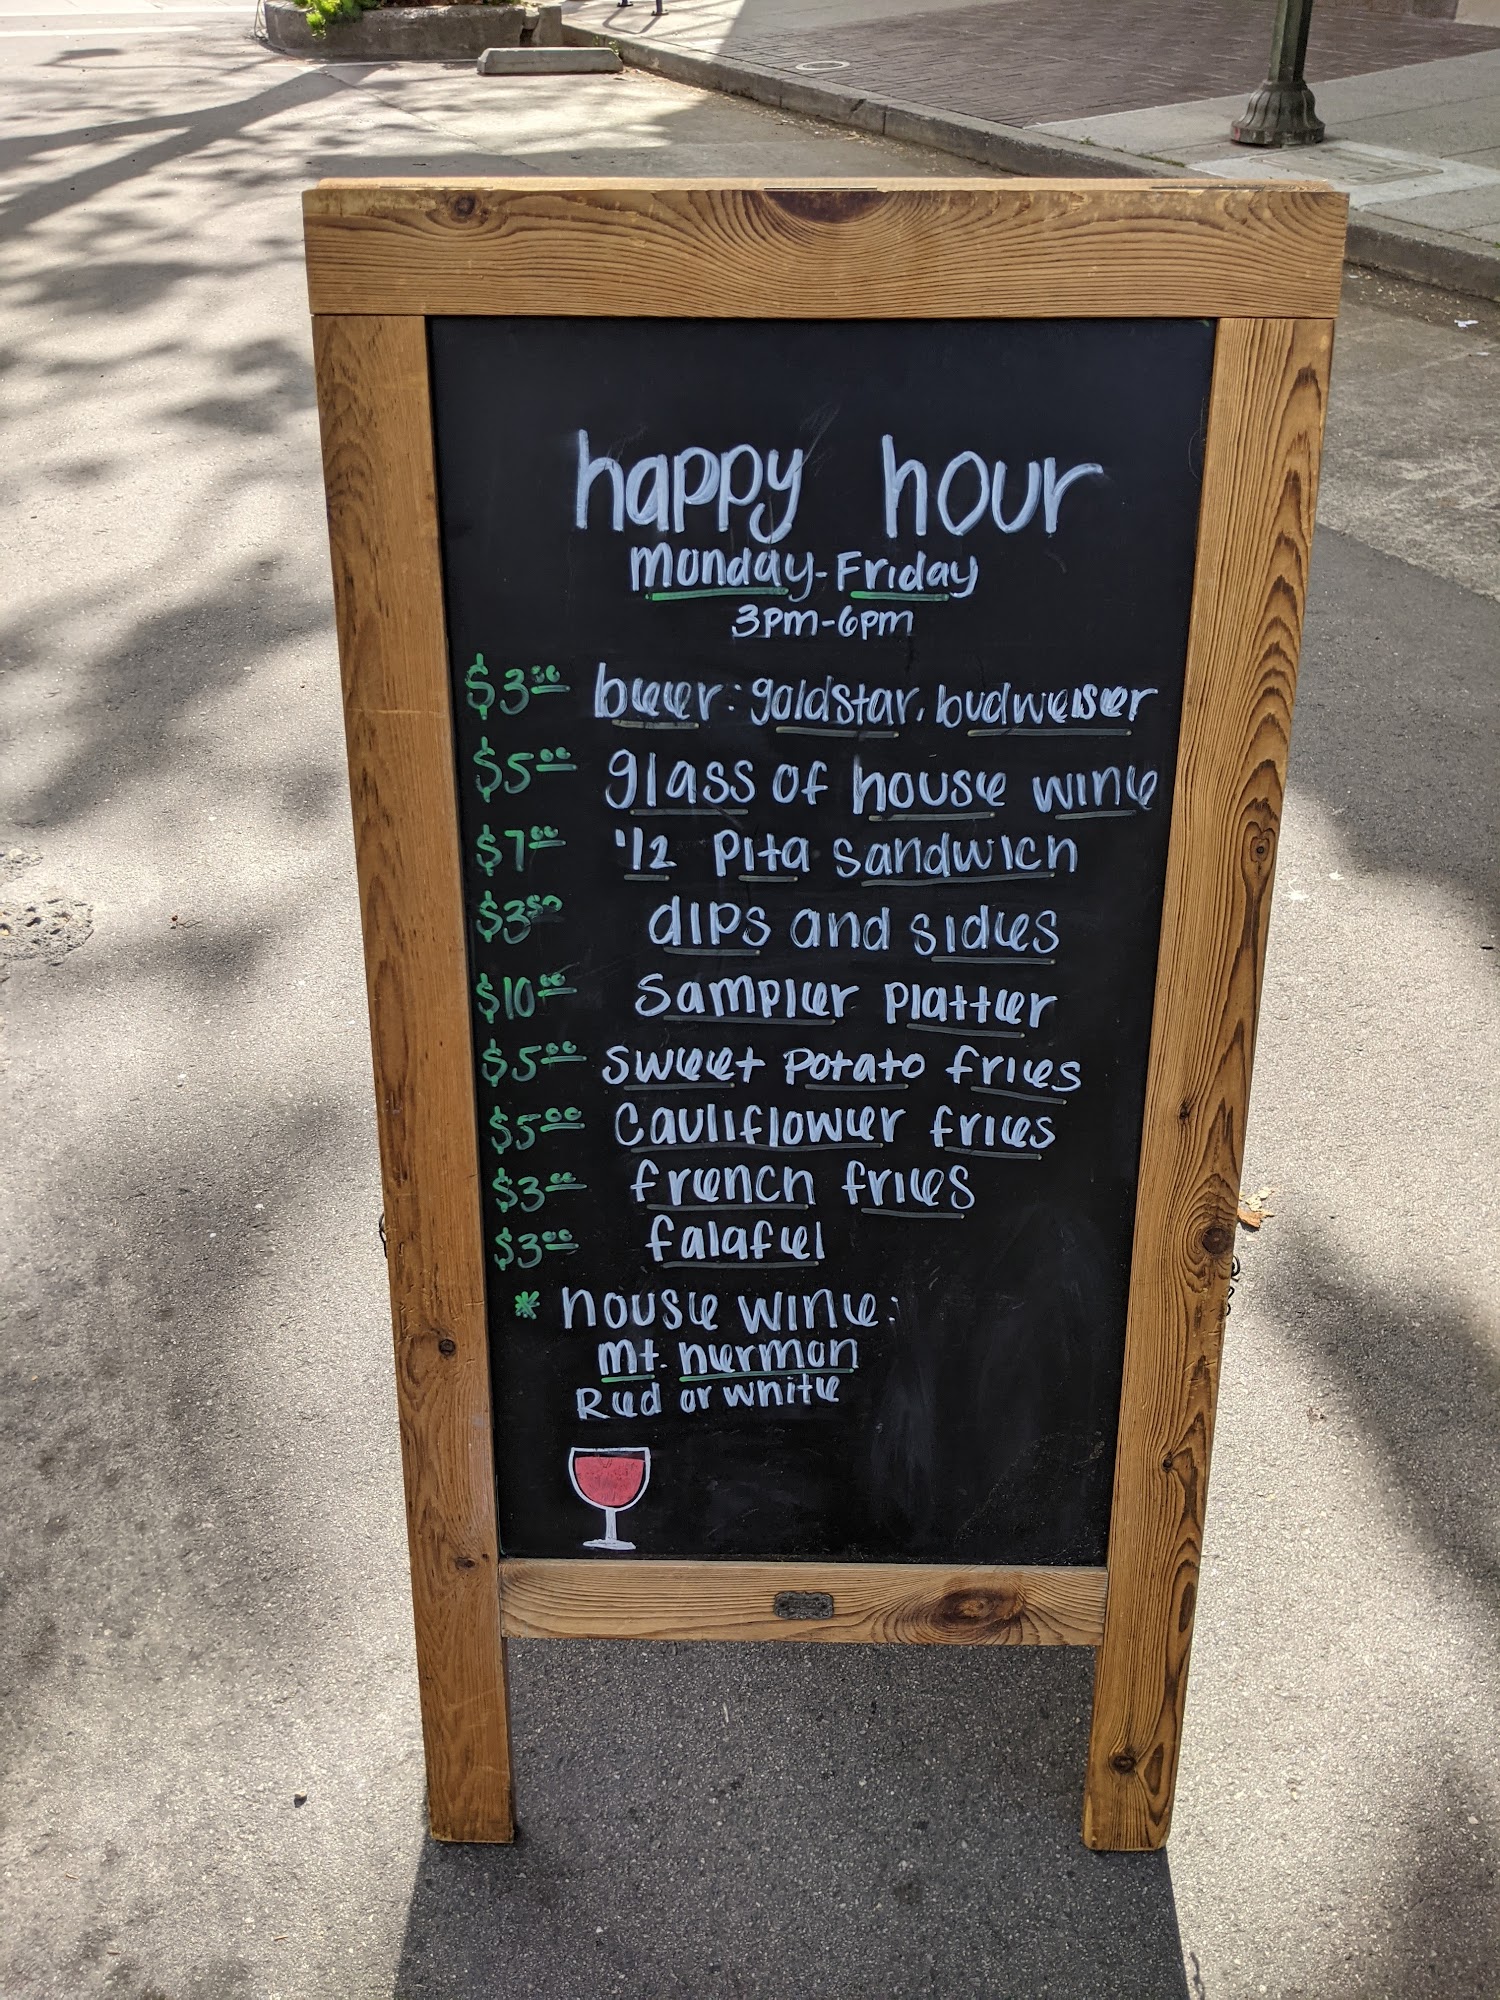 happy hour
Monday-Friday
3pm-6pm
$3.00 beer: goldstar, budweiser
$5.00 glass of house wine
$7.00 1/2 pita sandwich
$3.50 dips and sides
$10.00 sampler platter
$5.00 sweet potato fries
$5.00 cauliflower fries
$3.00 french fries
$3.00 falafel
* house wine:
mt. hermon
Red or white